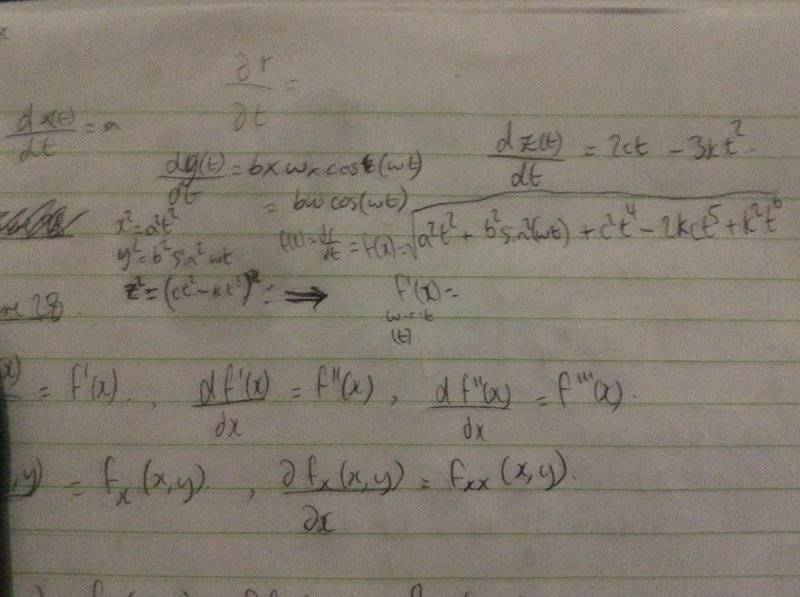 ∂r/∂t =
dx(t)/dt = a
dy(t)/dt = b x w x cos(wt)
= bw cos(wt)
dz(t)/dt = 2ct - 3kt²
x² = a²t²
y² = b² sin² wt
z² = (ct² - kt³)² = ⇒
= f(x) = √a²t² + b² sin²(wt) + c²t⁴ - 2kct⁵ + k²t⁶
f'(x) =
w.r.t
(t)
28
= f'(x). , df'(x)/dx = f''(x) , df''(x)/dx = f'''(x).
,y) = fₓ(x,y). , ∂fₓ(x,y)/∂x = fₓₓ(x,y).